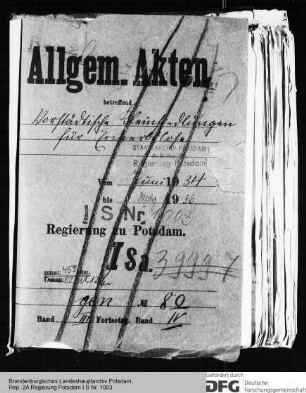 Allgem. Akten
betreffend
Vorstädtische Kleinsiedlungen
für Erwerbslose
STAATSARCHIV POTSDAM
Regierung Potsdam
vom Juni 1934
bis März 1936
I S Nr. 1003
Regierung zu Potsdam.
I Sa. 3999
gen № 80
Band III Fortsetzg. Band IV
Brandenburgisches Landeshauptarchiv Potsdam,
Rep. 2A Regierung Potsdam I S Nr. 1003
Gefördert durch
DFG Deutsche
Forschungsgemeinschaft